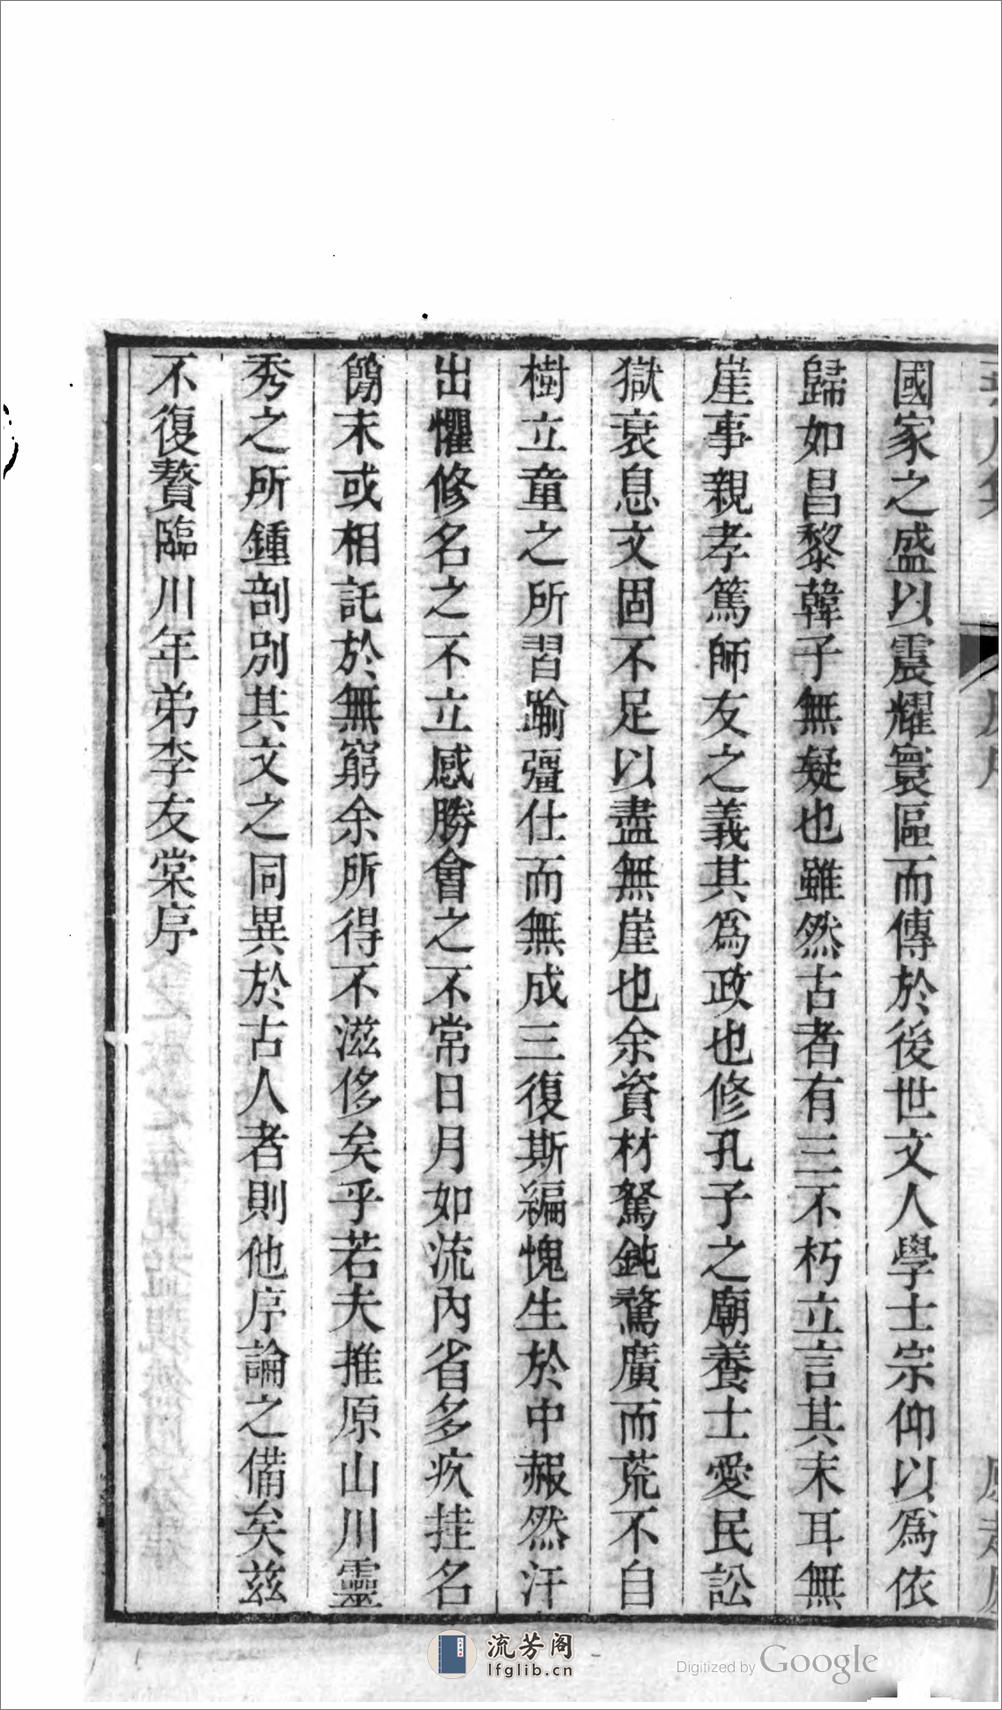 國家之盛以震耀寰區而傳於後世文人學士宗仰以爲依
歸如昌黎韓子無疑也雖然古者有三不朽立言其末耳無
崖事親孝篤師友之義其爲政也修孔子之廟養士愛民訟
獄衰息文固不足以盡無崖也余資材駑鈍騖廣而荒不自
樹立童之所習踰彊仕而無成三復斯編愧生於中赧然汗
出懼修名之不立感勝會之不常日月如流內省多疚挂名
簡末或相託於無窮余所得不滋侈矣乎若夫推原山川靈
秀之所鍾剖別其文之同異於古人者則他序論之備矣茲
不復贅臨川年弟李友棠序
流芳阁
lfglib.cn
Digitized by Google